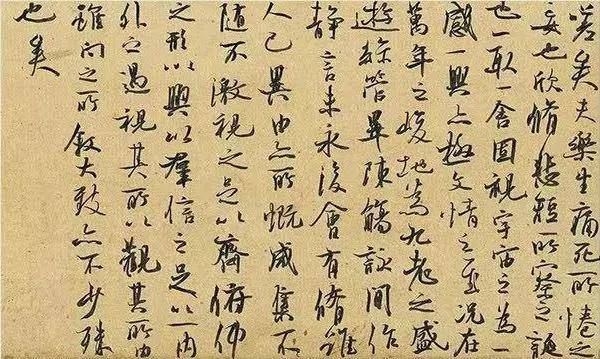 嗟矣夫樂生痛死所惓之
妄也欣脩悲短一所察之
也一取一舍固視宇宙之為一
感一興上極文情之至況在
萬年之峻地九老之盛
遊綜管畢陳觴詠間作
靜言未永後會有脩雖
人已異由亦所慨咸集不
隨不激視之足以齊俯仰
之形以興以羣信之足以一內
外之遇視其所以觀其所由
雖向之所敘大致亦不少殊
也矣